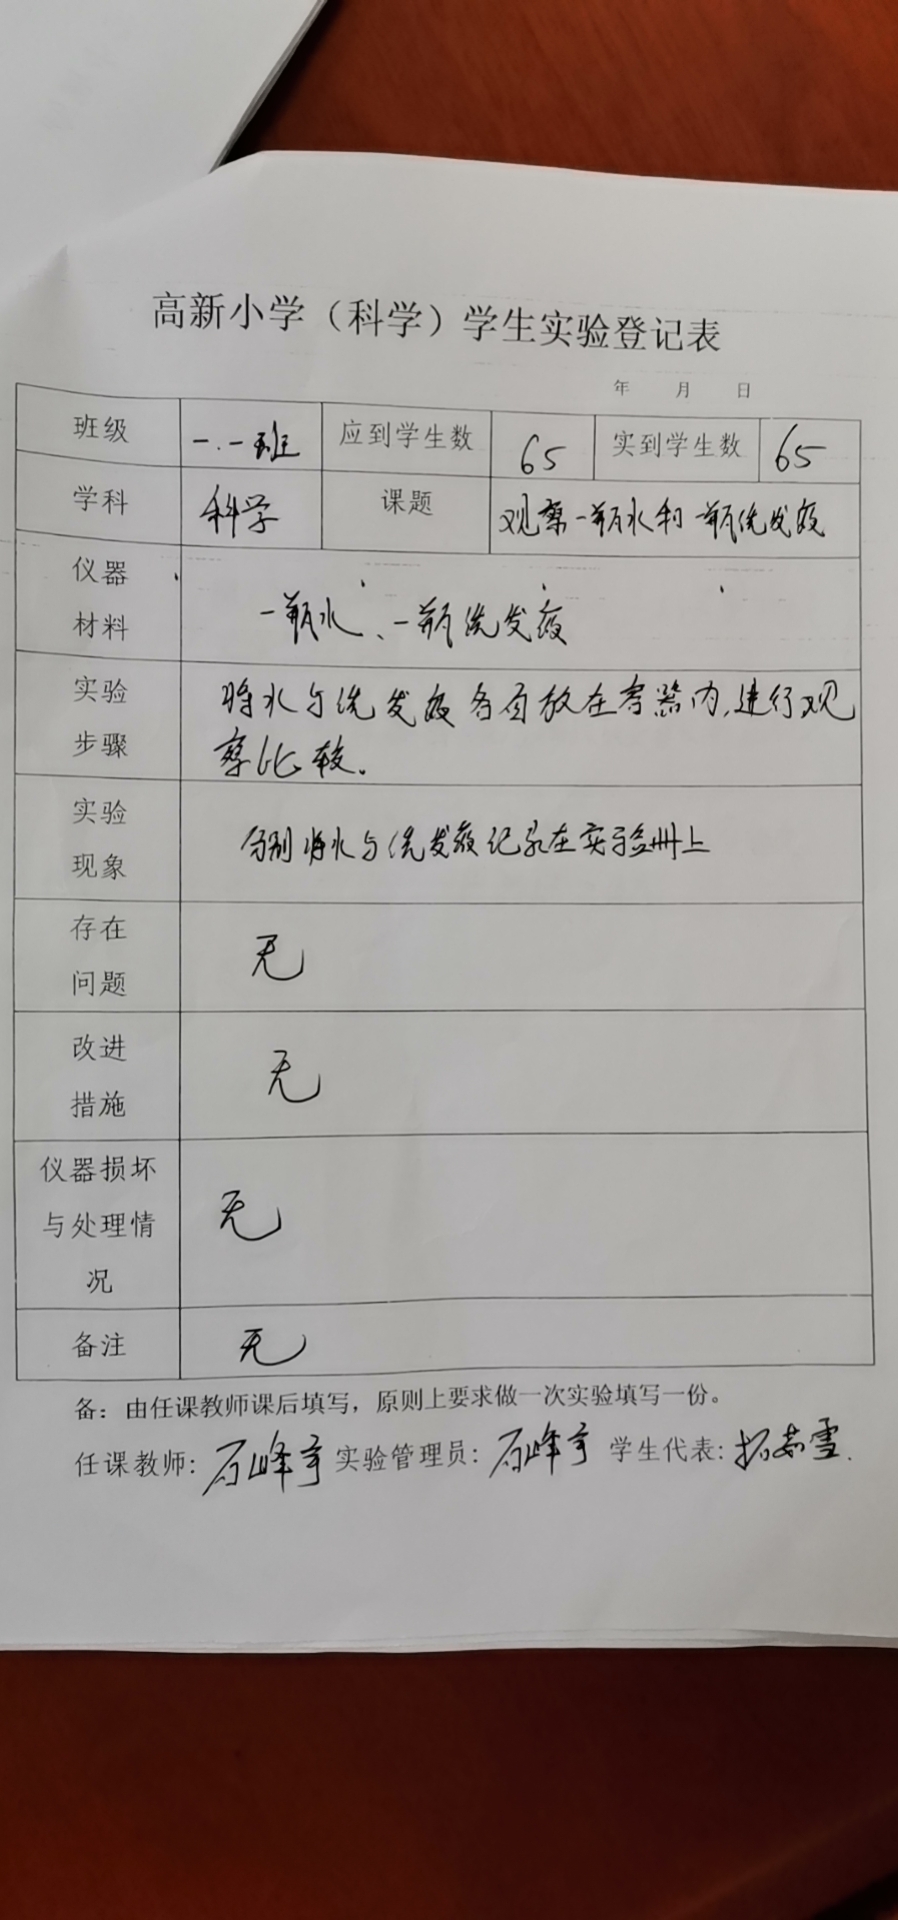 高新小学（科学）学生实验登记表
年 月 日
班级 一.一班 应到学生数 65 实到学生数 65
学科 科学 课题 观察一瓶水和一瓶洗发液
仪器
材料
一瓶水、一瓶洗发液
实验
步骤
将水与洗发液各自放在容器内,进行观
察比较.
实验
现象
分别将水与洗发液记录在实验册上
存在
问题
无
改进
措施
无
仪器损坏
与处理情
况
无
备注 无
备：由任课教师课后填写，原则上要求做一次实验填写一份。
任课教师: 石峰宇 实验管理员: 石峰宇 学生代表: 茹雪.